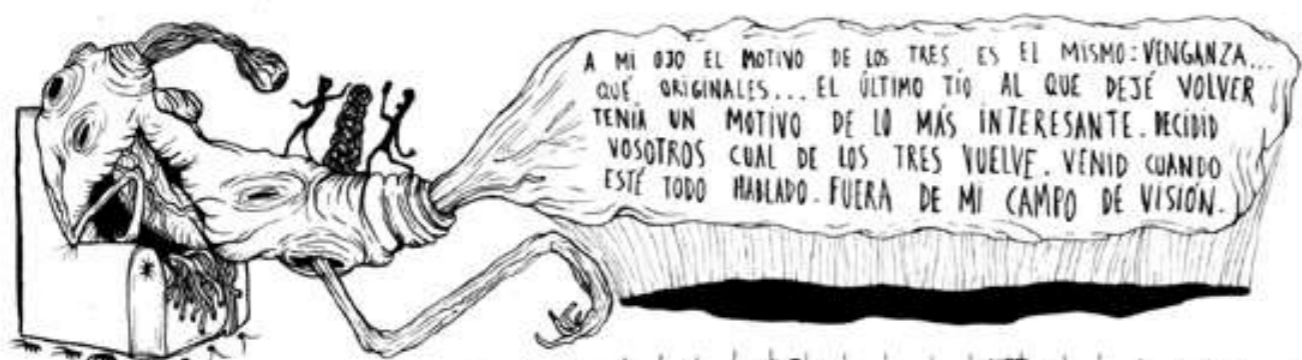 A MI OJO EL MOTIVO DE LOS TRES ES EL MISMO: VENGANZA...
QUÉ ORIGINALES... EL ÚLTIMO TÍO AL QUE DEJÉ VOLVER
TENÍA UN MOTIVO DE LO MÁS INTERESANTE. DECIDID
VOSOTROS CUAL DE LOS TRES VUELVE. VENID CUANDO
ESTÉ TODO HABLADO. FUERA DE MI CAMPO DE VISIÓN.